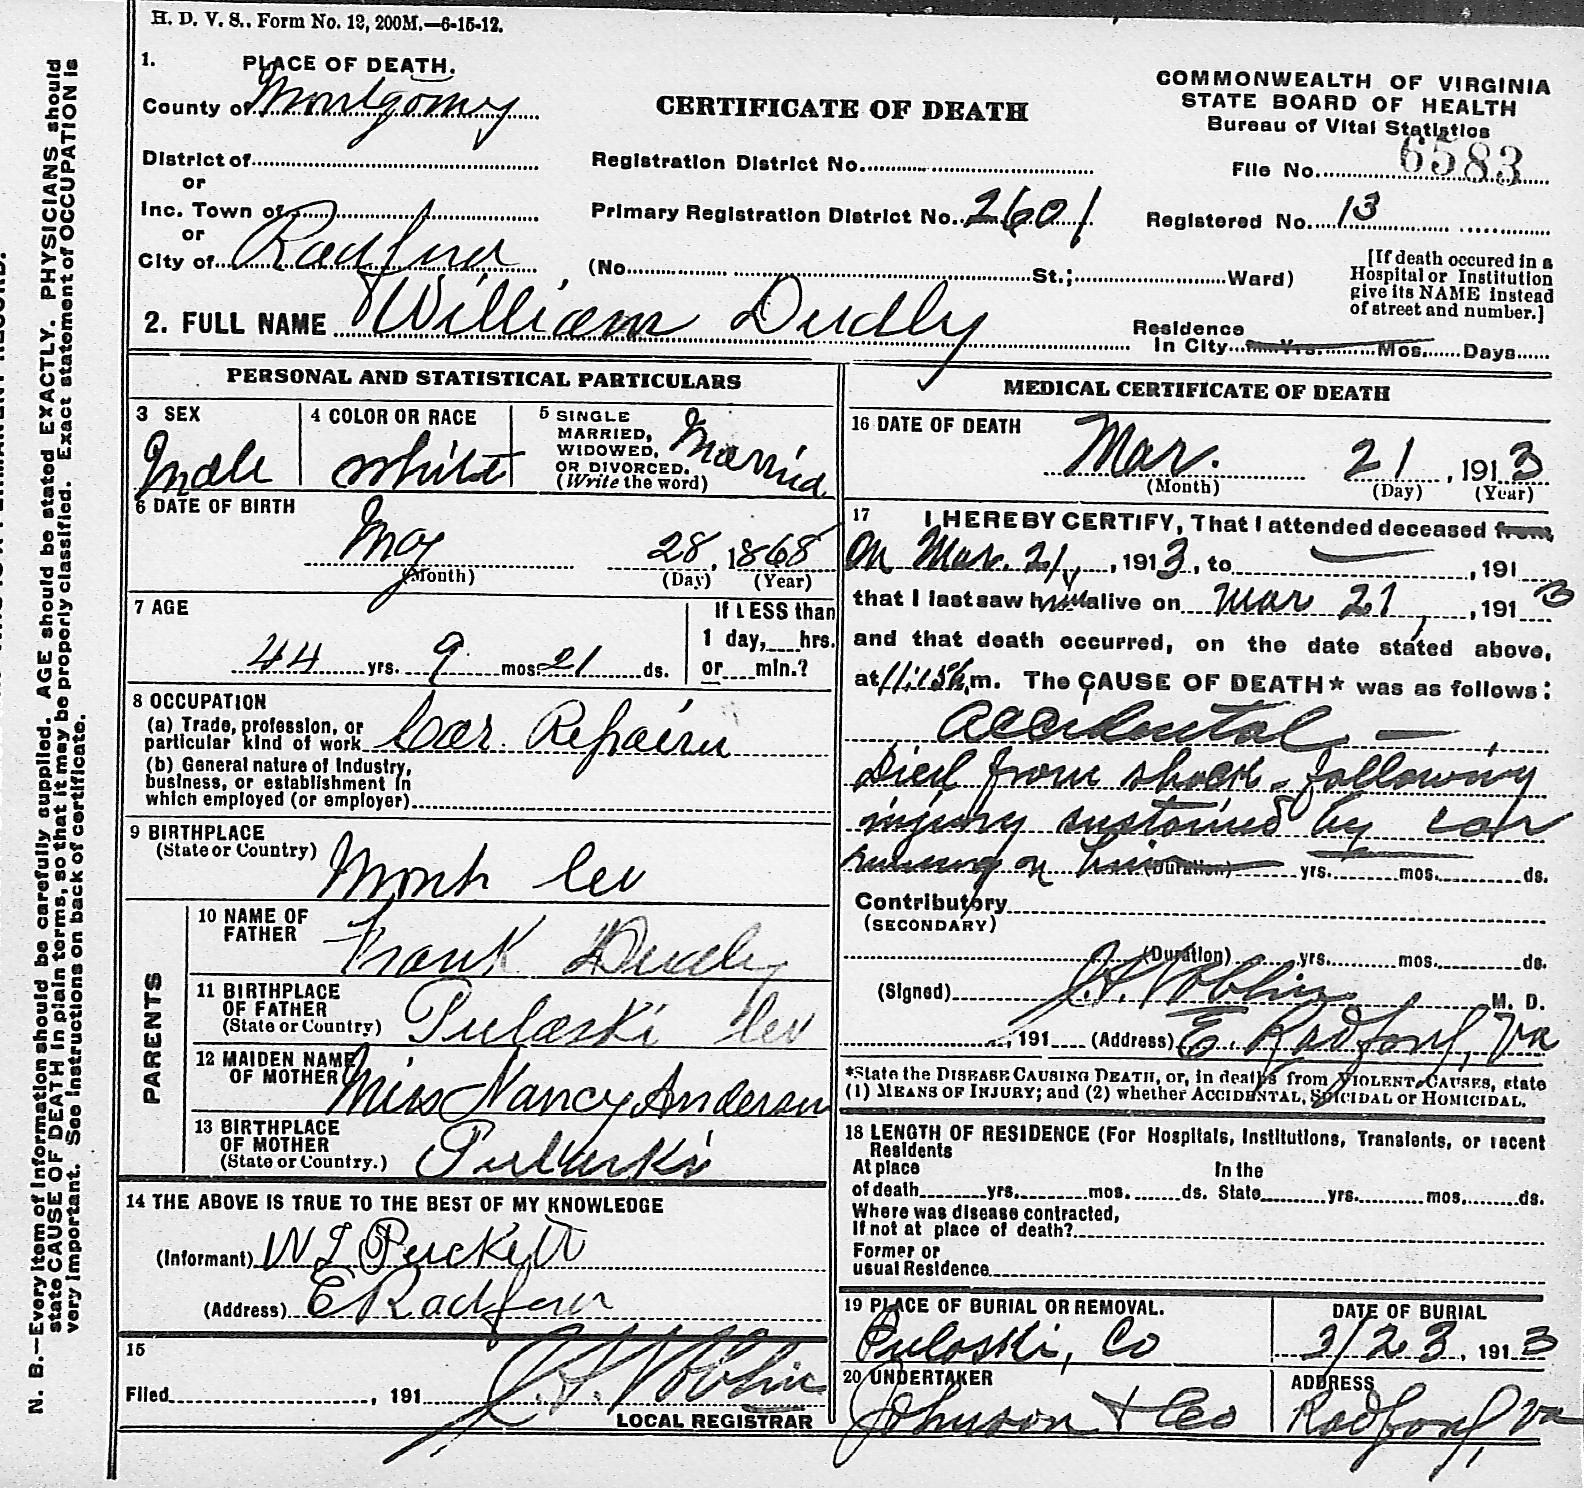 H. D. V. S., Form No. 12, 200M.—6-15-12.
1. PLACE OF DEATH.
County of Montgomery
District of
or
Inc. Town of
or
City of Radford
CERTIFICATE OF DEATH
Registration District No.
Primary Registration District No. 2601
(No. St.; Ward)
COMMONWEALTH OF VIRGINIA
STATE BOARD OF HEALTH
Bureau of Vital Statistics
File No. 6583
Registered No. 13
[If death occured in a
Hospital or Institution
give its NAME instead
of street and number.]
2. FULL NAME William Dudly
Residence
In City Yrs. Mos. Days
PERSONAL AND STATISTICAL PARTICULARS
3 SEX
Male
4 COLOR OR RACE
white
5 SINGLE
MARRIED,
WIDOWED,
OR DIVORCED.
(Write the word)
Married
6 DATE OF BIRTH
May 28, 1868
(Month) (Day) (Year)
7 AGE
44 yrs. 9 mos. 21 ds.
If LESS than
1 day, hrs.
or min.?
8 OCCUPATION
(a) Trade, profession, or
particular kind of work Car Repairer
(b) General nature of Industry,
business, or establishment in
which employed (or employer)
9 BIRTHPLACE
(State or Country) Mont Co
PARENTS
10 NAME OF
FATHER Frank Dudly
11 BIRTHPLACE
OF FATHER
(State or Country) Pulaski Co
12 MAIDEN NAME
OF MOTHER Miss Nancy Anderson
13 BIRTHPLACE
OF MOTHER
(State or Country.) Pulaski
14 THE ABOVE IS TRUE TO THE BEST OF MY KNOWLEDGE
(Informant) W L Puckett
(Address) E Radford
15
Filed , 191
LOCAL REGISTRAR
MEDICAL CERTIFICATE OF DEATH
16 DATE OF DEATH
Mar. 21, 1913
(Month) (Day) (Year)
17 I HEREBY CERTIFY, That I attended deceased from
on Mar. 21, 1913, to , 191
that I last saw him alive on Mar 21, 1913
and that death occurred, on the date stated above,
at m. The CAUSE OF DEATH* was as follows:
Accidental
Died from shock following
injury sustained by car
running on him (Duration) yrs. mos. ds.
Contributory
(SECONDARY)
(Duration) yrs. mos. ds.
(Signed) M. D.
, 191 (Address) E. Radford, Va
*State the DISEASE CAUSING DEATH, or, in deaths from VIOLENT CAUSES, state
(1) MEANS OF INJURY; and (2) whether ACCIDENTAL, SUICIDAL or HOMICIDAL.
18 LENGTH OF RESIDENCE (For Hospitals, Institutions, Transients, or recent
Residents
At place In the
of death yrs. mos. ds. State yrs. mos. ds.
Where was disease contracted,
If not at place of death?
Former or
usual Residence
19 PLACE OF BURIAL OR REMOVAL.
Pulaski, Co
DATE OF BURIAL
3/23, 1913
20 UNDERTAKER
Johnson & Co
ADDRESS
Radford, Va
N. B.—Every item of information should be carefully supplied. AGE should be stated EXACTLY. PHYSICIANS should
state CAUSE OF DEATH in plain terms, so that it may be properly classified. Exact statement of OCCUPATION is
very important. See instructions on back of certificate.